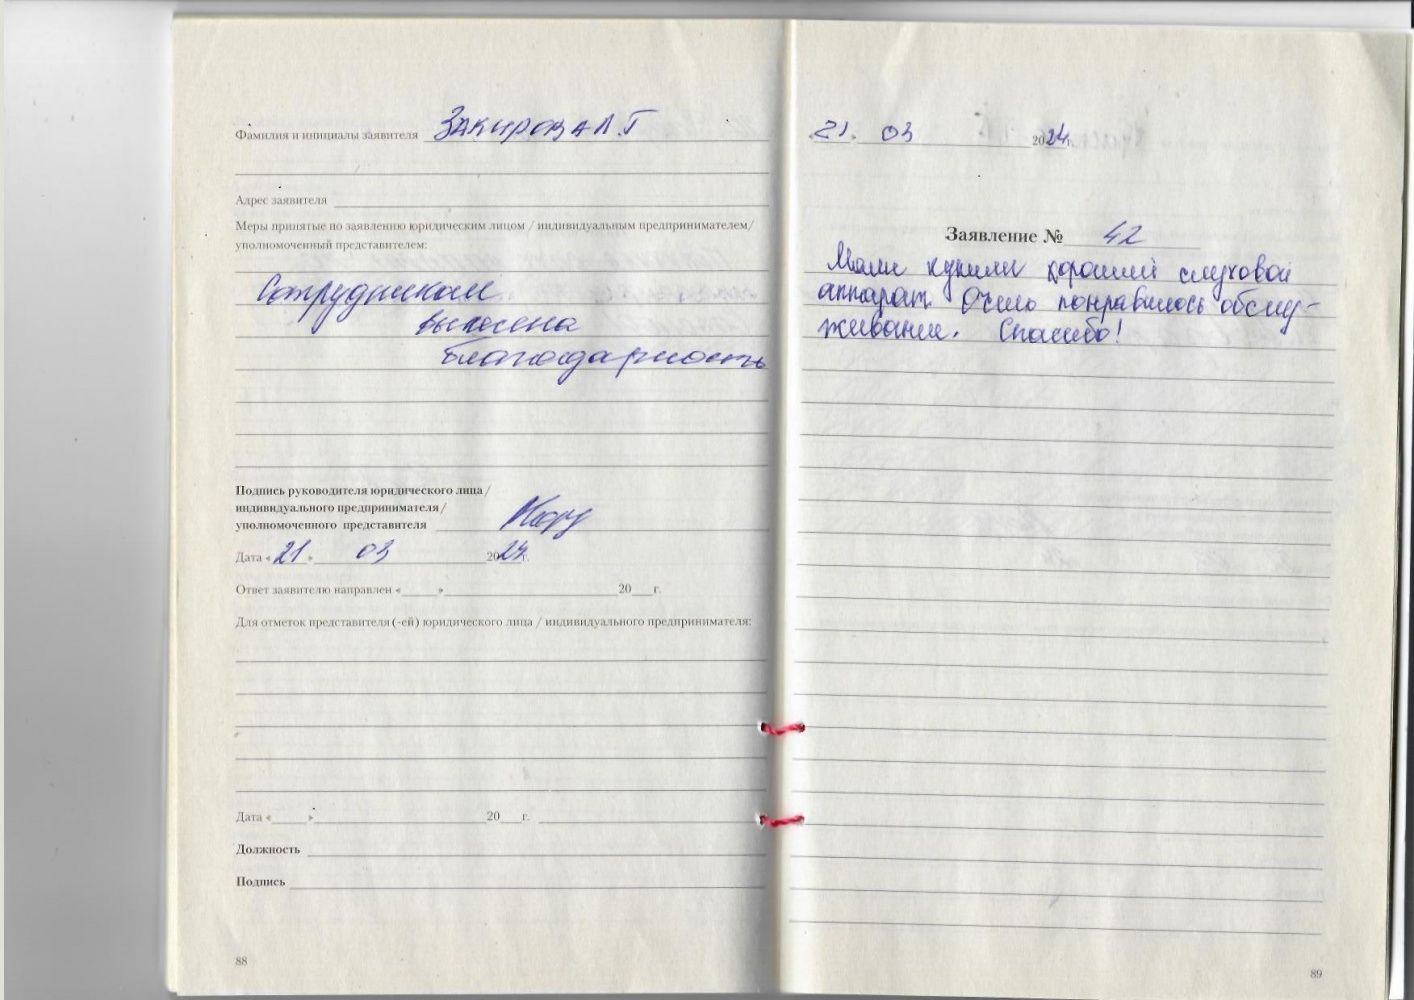 Фамилия и инициалы заявителя Закирова Л.Г
Адрес заявителя
Меры принятые по заявлению юридическим лицом / индивидуальным предпринимателем/
уполномоченный представителем:
Сотрудникам
вынесена
благодарность
Подпись руководителя юридического лица/
индивидуального предпринимателя/
уполномоченного представителя
Дата «21» 03 2024г.
Ответ заявителю направлен «____»____ 20___г.
Для отметок представителя (-ей) юридического лица / индивидуального предпринимателя:
Дата «____»____ 20___г.
Должность
Подпись
88
21. 03 2024г.
Заявление № 42
Маме купили хороший слуховой
аппарат. Очень понравилось обслу-
живание. Спасибо!
89